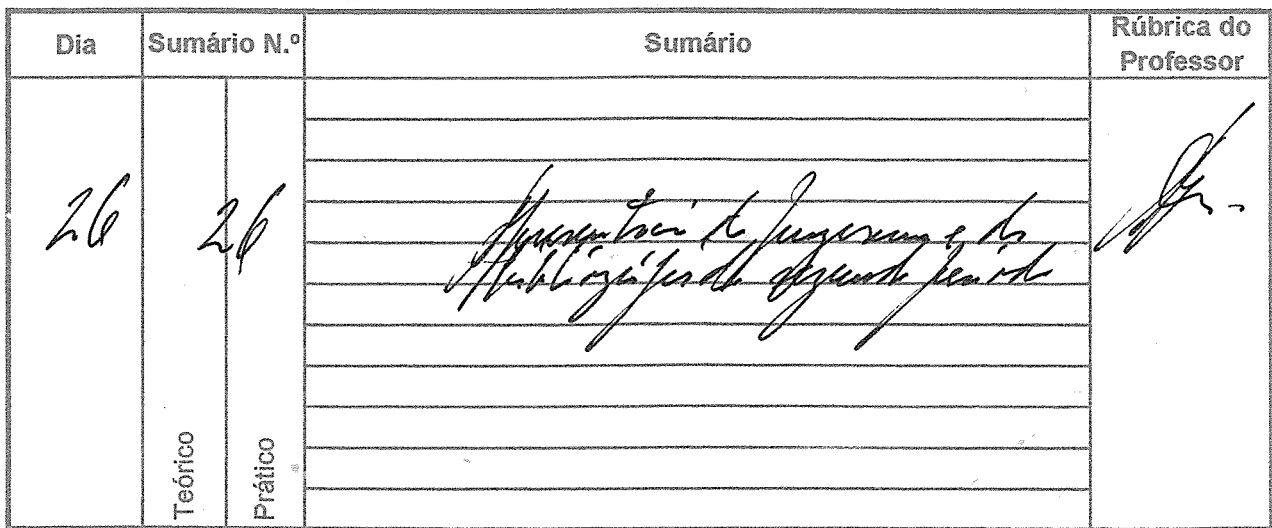 Dia
Sumário N.º
Sumário
Rúbrica do
Professor
26
26
Apresentação do programa e da
bibliografia do segundo período
Teórico
Prático